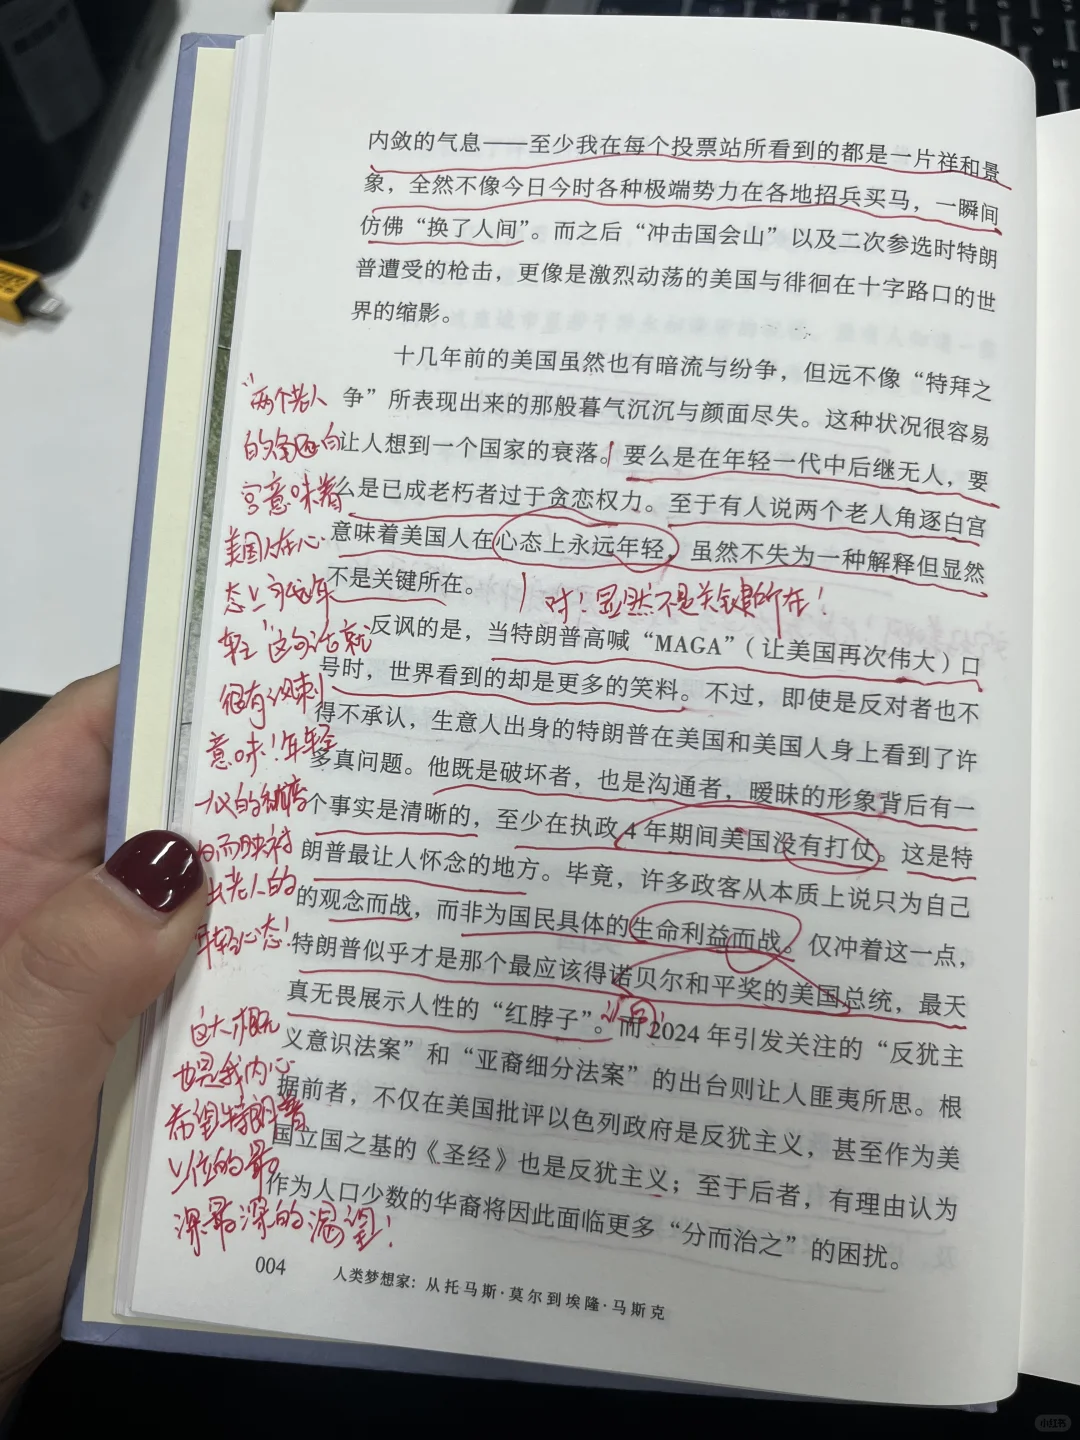 内敛的气息——至少我在每个投票站所看到的都是一片祥和景
象，全然不像今日今时各种极端势力在各地招兵买马，一瞬间
仿佛“换了人间”。而之后“冲击国会山”以及二次参选时特朗
普遭受的枪击，更像是激烈动荡的美国与徘徊在十字路口的世
界的缩影。
十几年前的美国虽然也有暗流与纷争，但远不像“特拜之
争”所表现出来的那般暮气沉沉与颜面尽失。这种状况很容易
让人想到一个国家的衰落。要么是在年轻一代中后继无人，要
么是已成老朽者过于贪恋权力。至于有人说两个老人角逐白宫
意味着美国人在心态上永远年轻，虽然不失为一种解释但显然
不是关键所在。
对！显然不是关键所在！
反讽的是，当特朗普高喊“MAGA”（让美国再次伟大）口
号时，世界看到的却是更多的笑料。不过，即使是反对者也不
得不承认，生意人出身的特朗普在美国和美国人身上看到了许
多真问题。他既是破坏者，也是沟通者，暧昧的形象背后有一
个事实是清晰的，至少在执政4年期间美国没有打仗。这是特
朗普最让人怀念的地方。毕竟，许多政客从本质上说只为自己
的观念而战，而非为国民具体的生命利益而战。仅冲着这一点，
特朗普似乎才是那个最应该得诺贝尔和平奖的美国总统，最天
真无畏展示人性的“红脖子”。而2024年引发关注的“反犹主
义意识法案”和“亚裔细分法案”的出台则让人匪夷所思。根
据前者，不仅在美国批评以色列政府是反犹主义，甚至作为美
国立国之基的《圣经》也是反犹主义；至于后者，有理由认为
作为人口少数的华裔将因此面临更多“分而治之”的困扰。
“两个老人
的角逐白
宫意味着
美国人在心
态上永远年
轻”这句话就
很有讽刺
意味！年轻
人的
而映衬
出老人的
年轻心态！
这大概
也是我内心
希望特朗普
上位的最
深最深的渴望！
004
人类梦想家：从托马斯·莫尔到埃隆·马斯克
小红书